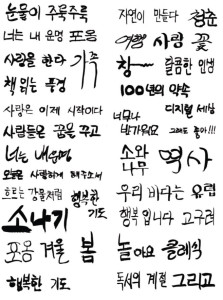 눈물이 주룩주룩
너는 내 운명 포옹
사람을 한다 가족
책 읽는 풍경
사랑은 이제 시작이다
사람들은 꿈을 꾸고
너는 내운명
오늘도 사랑하게 해주소서
흐르는 강물처럼 행복한 기도
소나기
포옹 겨울 봄
행복한 기도
자연이 만들다 청춘
여름 사람 꽃
창~ 달콤한 인생
100년의 약속
너무나 반가워요 디지털 세상
그래도 좋아!!!
소와 나무 역사
우리 바다는 유럽
행복입니다 고구려
놀아요 클래식
독서의 계절 그리고